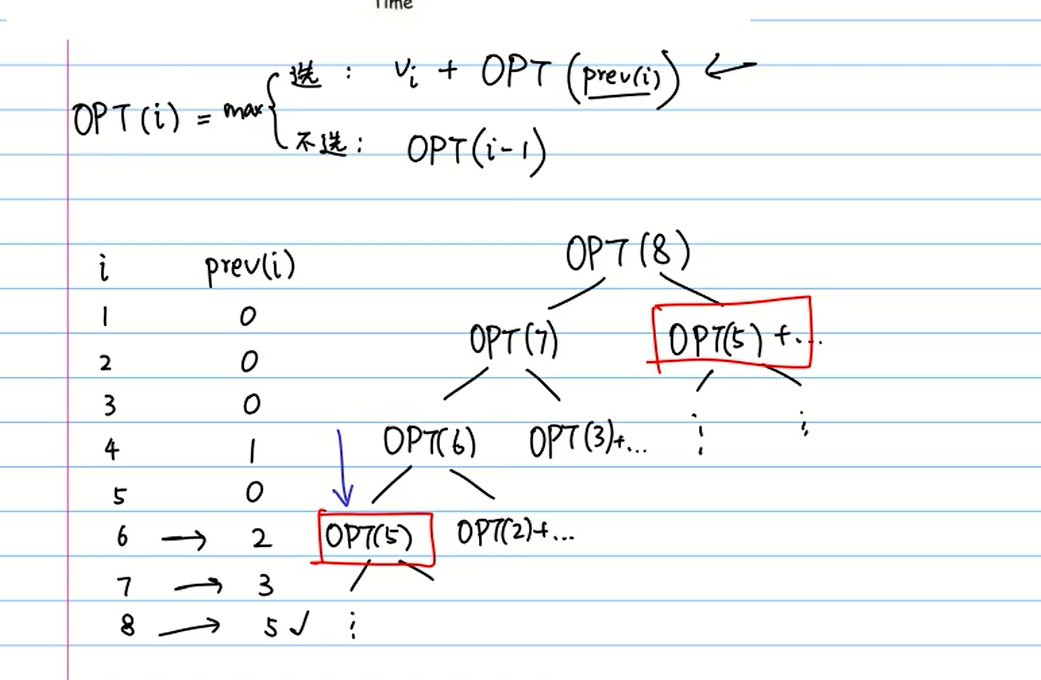 Time
OPT(i) = max { 选: vi + OPT(prev(i)) ←
不选: OPT(i-1)
i prev(i)
1 0
2 0
3 0
4 1
5 0
6 → 2
7 → 3
8 → 5 ✓
OPT(8)
OPT(7) OPT(5)+...
OPT(6) OPT(3)+... ⋮ ⋮
OPT(5) OPT(2)+...
⋮